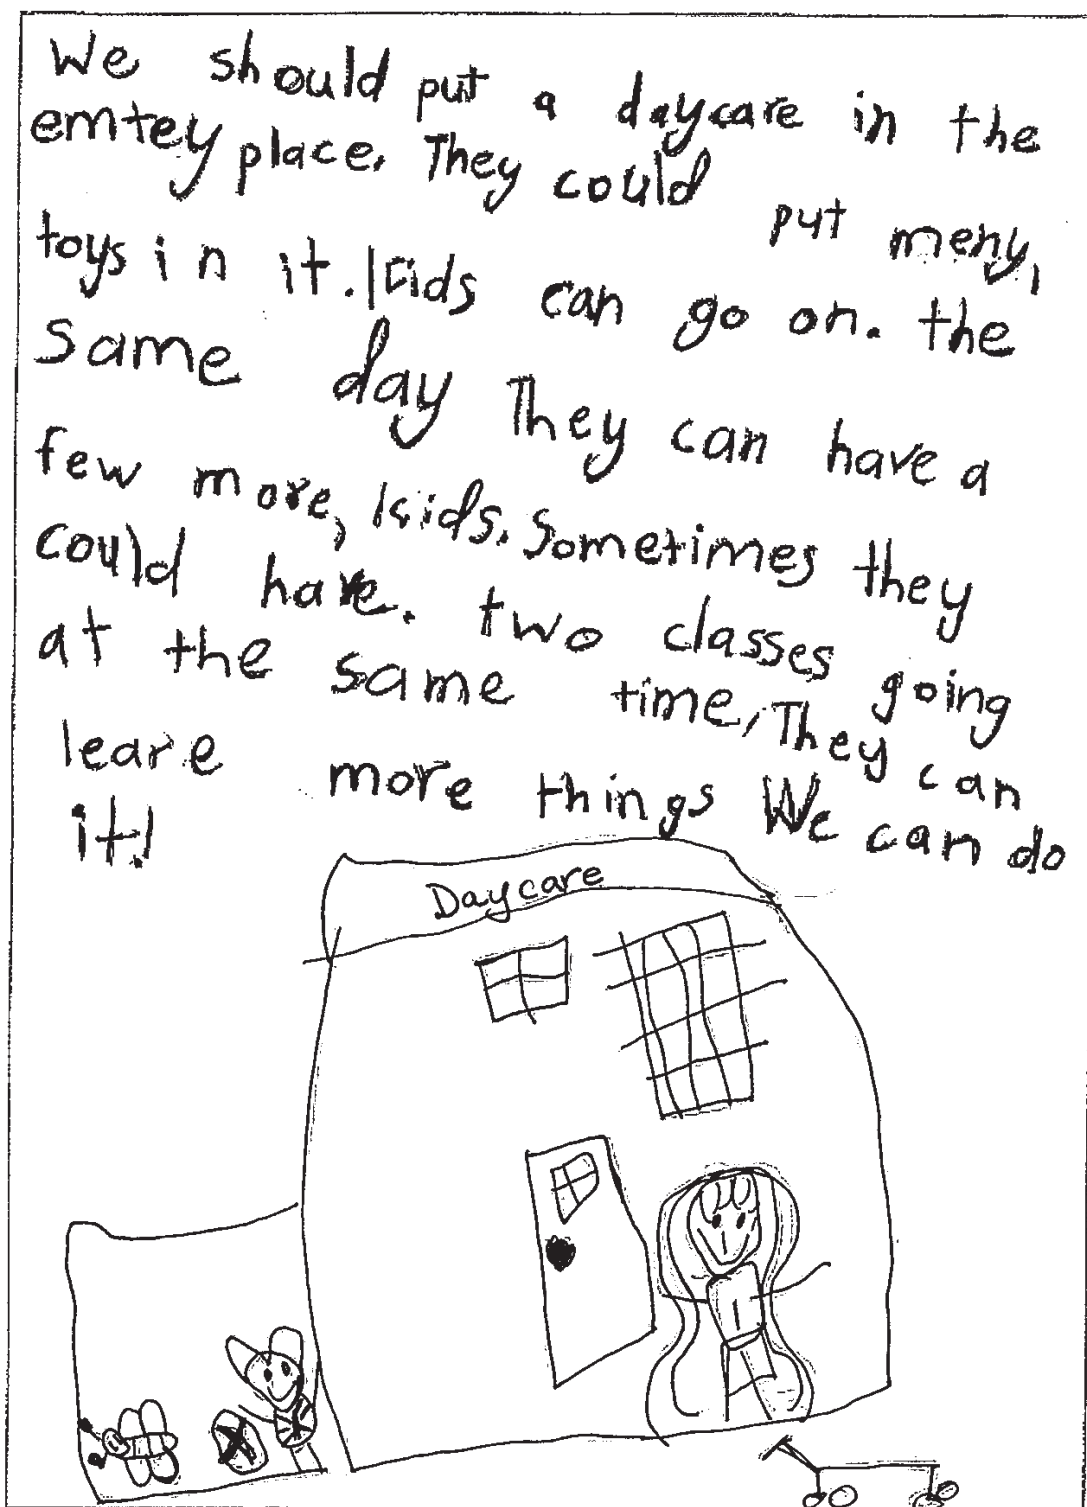 We should put a daycare in the
emtey place. They could put meny,
toys in it. Kids can go on. the
same day They can have a
few more, kids. Sometimes they
could have. two classes going
at the same time, They can
leare more things We can do
it!
Daycare